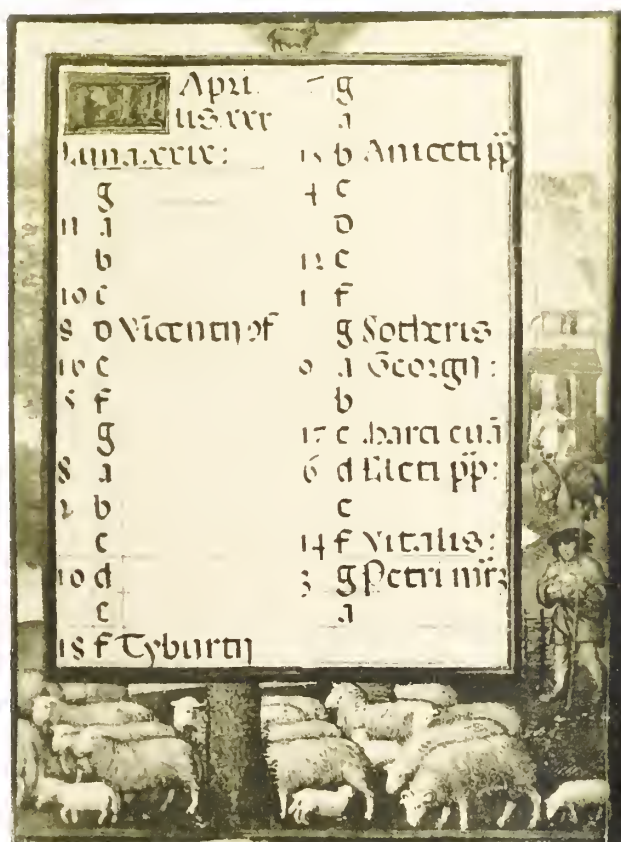 Apri
lis.xxx
Luna.xxix:
g
11 a
b
10 c
8 d Vicentii of
e
5 f
g
8 a
2 b
c
10 d
e
18 f Tyburtii
g
a
b Aniceti pp
4 c
d
12 e
1 f
g Sotheris
a Georgii:
b
17 c Marci euā
6 d Cleti pp:
e
14 f Vitalis:
3 g Petri mr̄
a